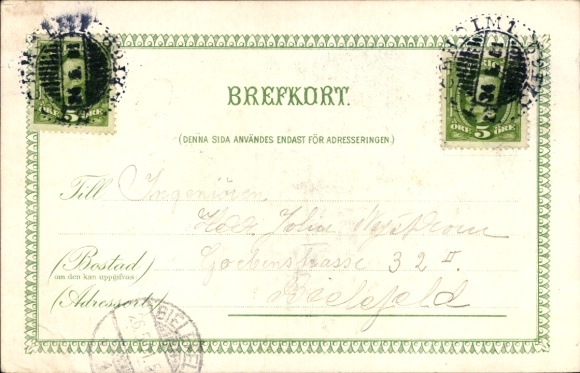 BREFKORT.
(DENNA SIDA ANVÄNDES ENDAST FÖR ADRESSERINGEN.)
5 ÖRE
ÖRE 5 ÖRE
24 5 01
Till Ingeniören
Herr John Nyström
(Bostad) Goebenstrasse 32 II
om den kan uppgifvas
(Adressort) Bielefeld
BIELEFELD